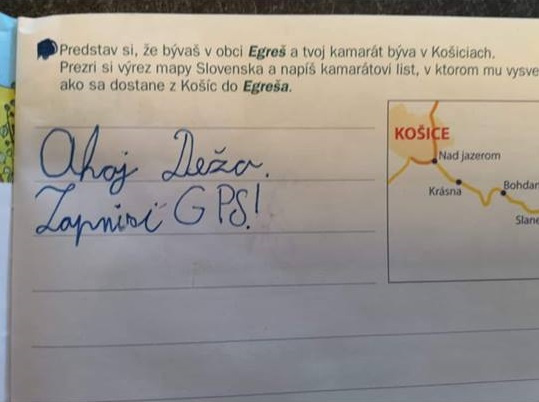 Predstav si, že bývaš v obci Egreš a tvoj kamarát býva v Košiciach.
Prezri si výrez mapy Slovenska a napíš kamarátovi list, v ktorom mu vysve
ako sa dostane z Košíc do Egreša.
Ahoj Dežo.
Zapni si GPS!
KOŠICE
Nad jazerom
Krásna
Bohdan
Slane